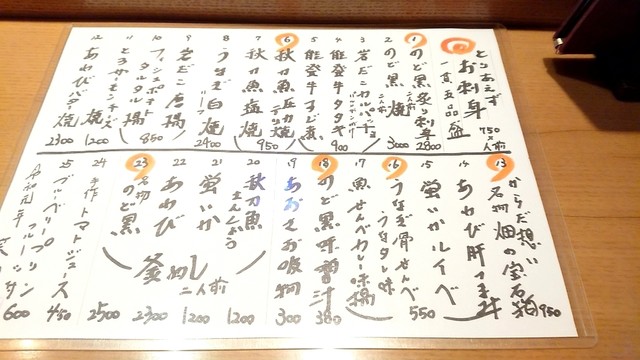 とりあえず
お刺身
一貫五品盛
750 一人前
1
のど黒炙り刺身
二人前
2800
2
のど黒 焼
二人前
3000
3
岩だこカルパッチョ
4
能登牛タタキ
900
5
能登牛すじ煮
6
秋刀魚 焼
7
秋刀魚塩焼
950
8
うなぎ白焼
2400
9
岩だこ唐揚
10
フィッシュポテト
タルタル
850
11
とろサーモンチーズ焼
1200
12
あわびバター焼
2300
13
からだ想い
名物 畑の宝石箱
950
14
あわび肝つま味
15
蛍いかルイベ
550
16
うなぎ骨せんべ
うなタレ味
17
魚せんべカレー味揚
18
のど黒味噌汁
380
19
あおさお吸物
300
20
秋刀魚
1200
21
蛍いか
1200
22
あわび
2300
23
名物
のど黒
2500
釜めし
二人前
24
手作トマトジュース
450
25
ブルーベリープリン
600